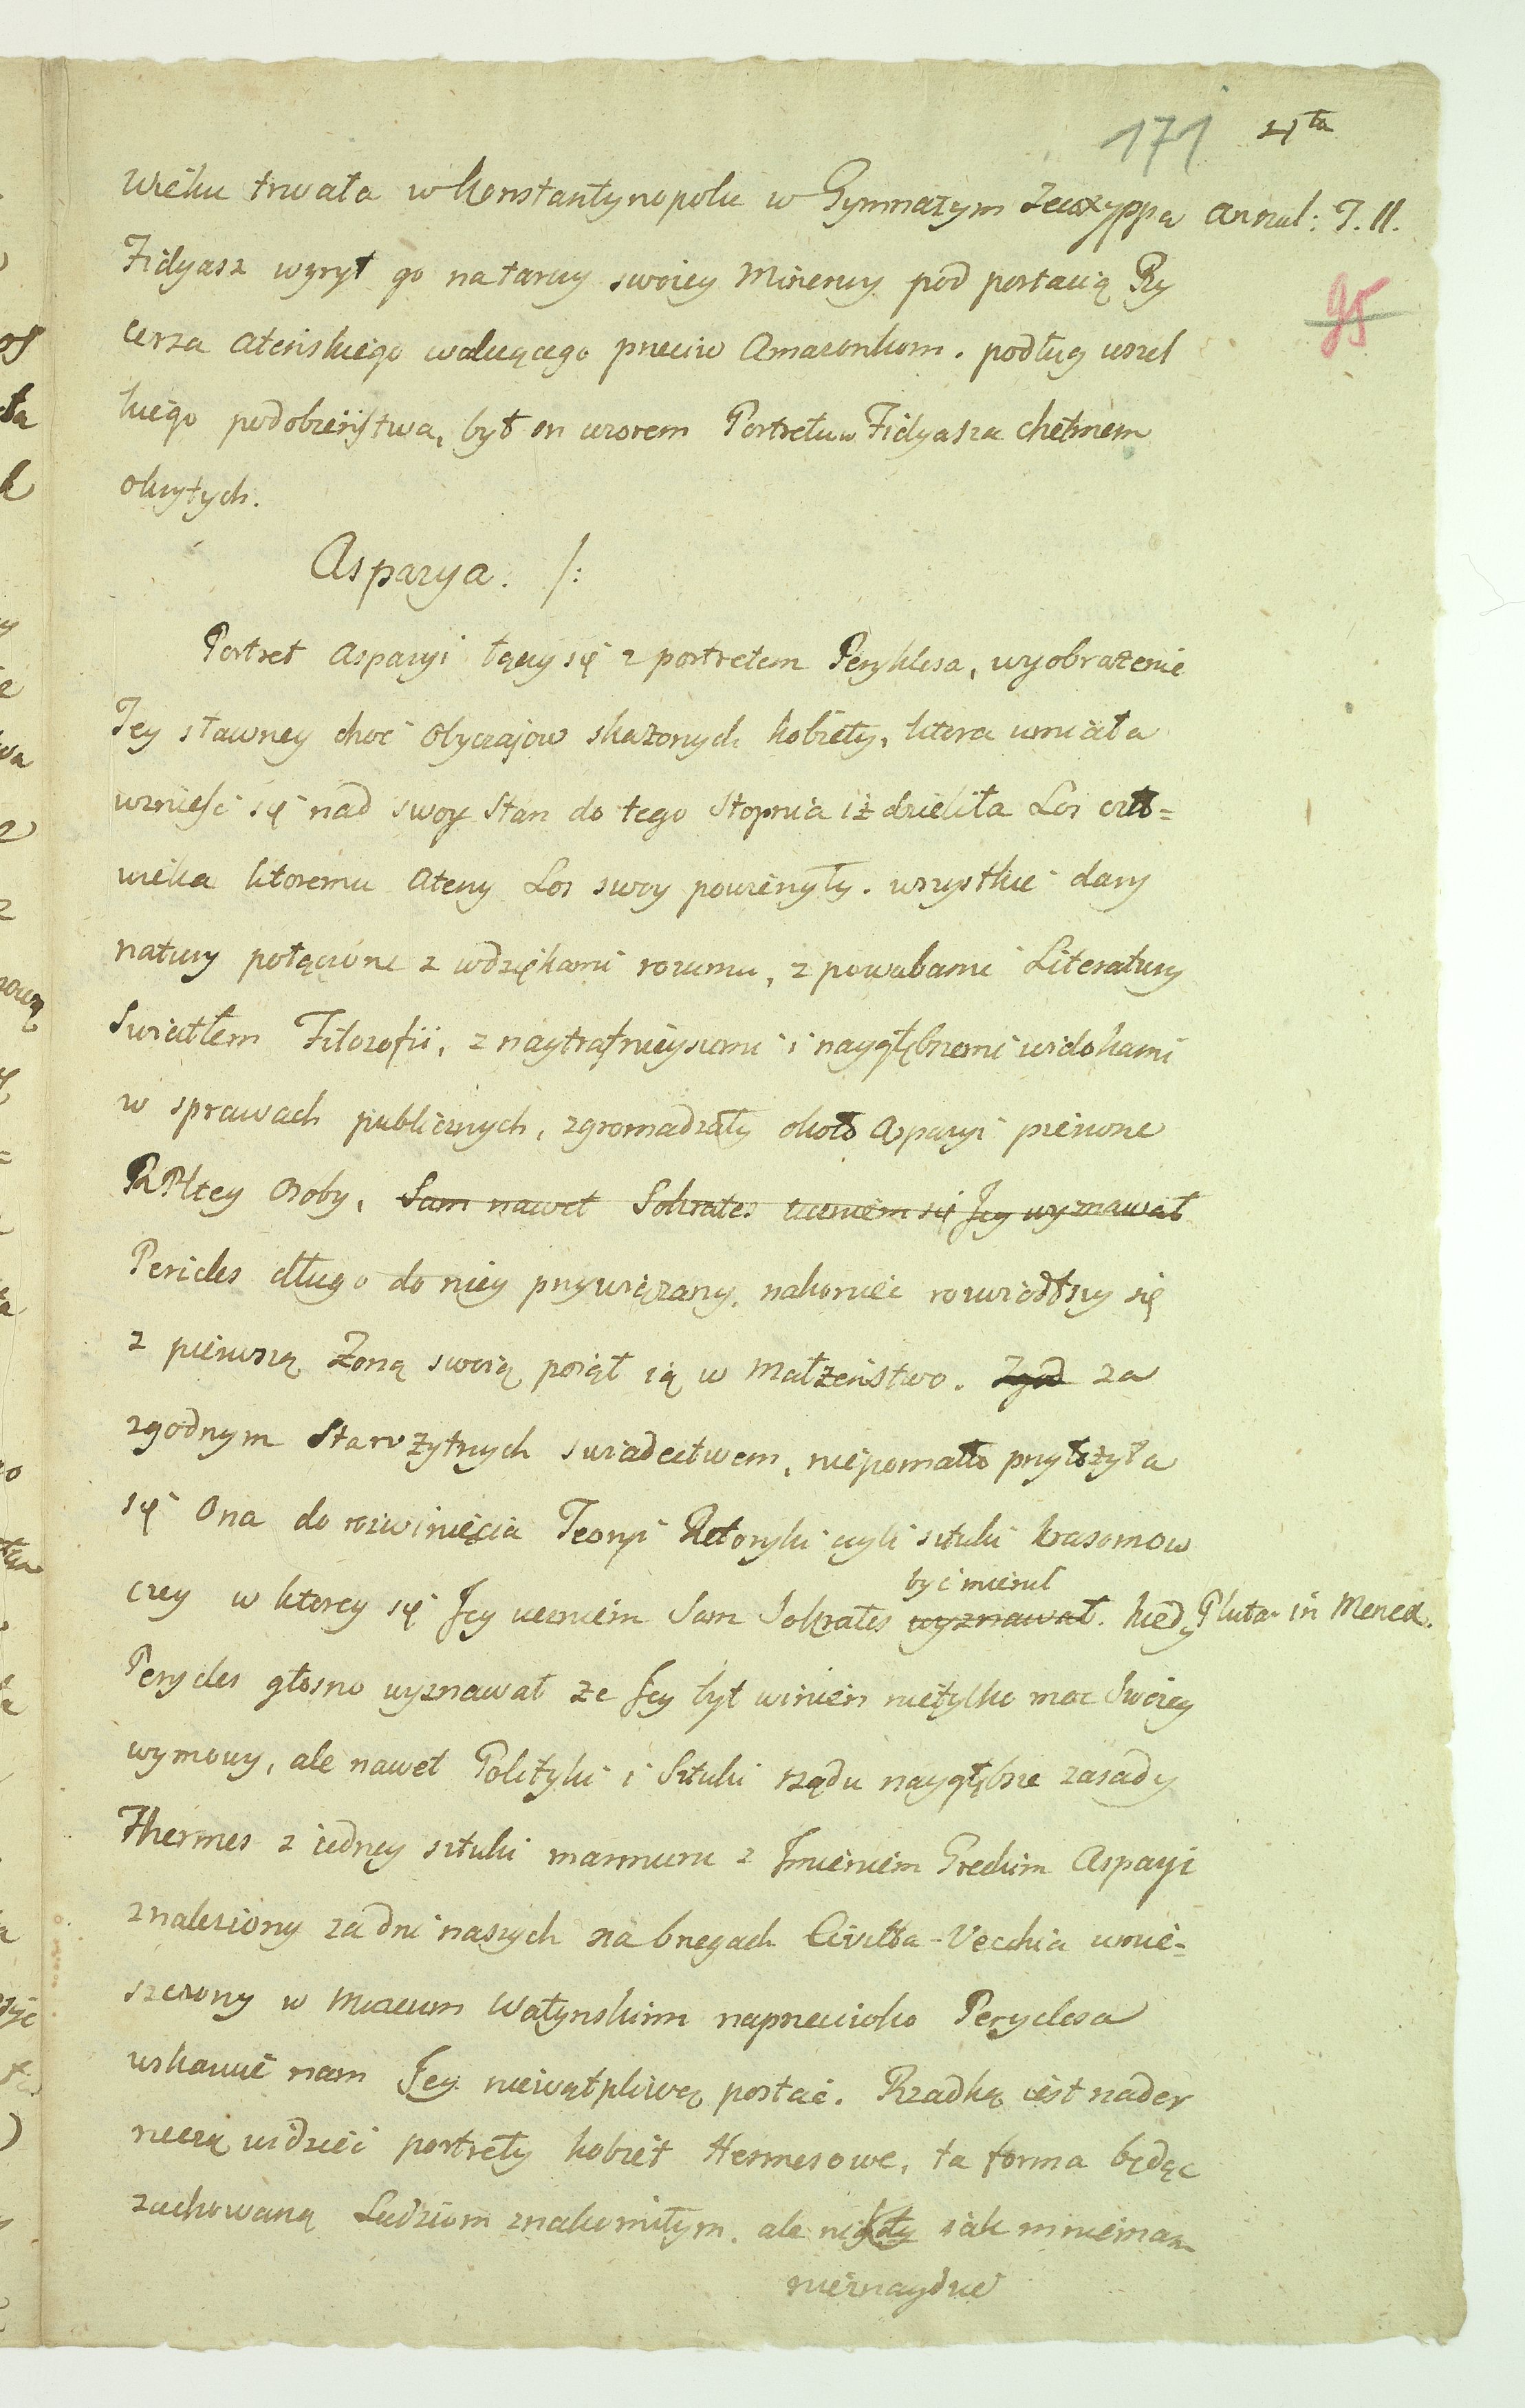 171 21ta
Wieku trwała w Konstantynopolu w Gymnazym Zeuxyppa Annal: T. II.
Fidyasz wyrył go na tarczy swoiey Minerwy pod postacią Ry
95
cerza Ateńskiego walczącego przeciw Amazonkom. podług wszel
kiego podobieństwa, był on wzorem Portretuw Fidyasza chełmem
okrytych.
Aspazya. /:
Portret Aspazyi łączy się z portretem Peryklesa, wyobrażenie
Tey sławney choć obyczajow skażonych kobiety, ktora umiała
wznieść się nad swoy Stan do tego Stopnia iż dzieliła Los czło=
wieka ktoremu Ateny Los swoy powierzyły. wszystkie dary
natury połączone z wdziękami rozumu, z powabami Literatury
Swiatłem Filozofii, z naytrafnieyszemi i naygłębszemi widokami
w sprawach publicznych, zgromadzały około Aspazyi pierwsze
RPltey Osoby, Sam nawet Sokrates uczniem się Jey wyznawał
Pericles długo do niey przywiązany, nakoniec rozwiodłszy się
z pierwszą Żoną swoią poiął ią w Małżeństwo. Zgod za
zgodnym Starożytnych swiadectwem, niepomału przyłożyła
się Ona do rozwinięcia Teoryi Retoryki czyli sztuki krasomow
być mienił
czey w ktorey się Jey uczniem Sam Sokrates wyznawał. kiedy Pluta- in Menex.
Perycles głosno wyznawał że Jey był winien nietylko moc Swoiey
wymowy, ale nawet Polityki i Sztuki rządu naygłębsze zasady
Hhermes z iedney sztuki marmuru z Jmieniem Greckim Aspazyi
znaleziony za dni naszych na brzegach Civitta-Vecchia umie=
szczony w Muzeum Watynskim naprzeciwko Peryclesa
wskazuie nam Jey niewątpliwą postać. Rzadką iest nader
rzeczą widzieć portrety kobiet Hermesowe, ta forma będąc
zachowaną Ludziom znakomitym. ale nigdy iak mniemam
nieznayduie